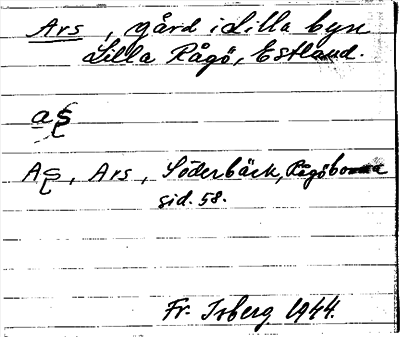 Ars, gård i Lilla byn
Lilla Rågö, Estland.
aʂ
Aʂ, Ars, Söderbäck, Rågöborna
sid. 58.
Fr. Isberg 1944.